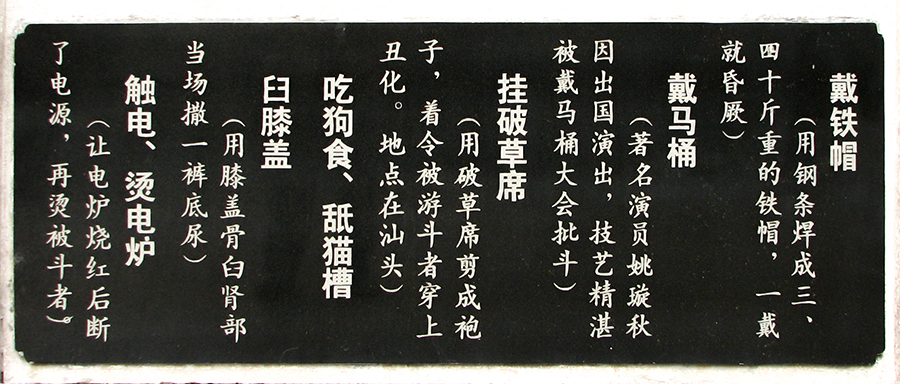 戴铁帽
（用钢条焊成三、
四十斤重的铁帽，一戴
就昏厥）
戴马桶
（著名演员姚璇秋
因出国演出，技艺精湛
被戴马桶大会批斗）
挂破草席
（用破草席剪成袍
子，着令被游斗者穿上
丑化。地点在汕头）
吃狗食、舐猫槽
臼膝盖
（用膝盖骨臼肾部
当场撒一裤底尿）
触电、烫电炉
（让电炉烧红后断
了电源，再烫被斗者）。